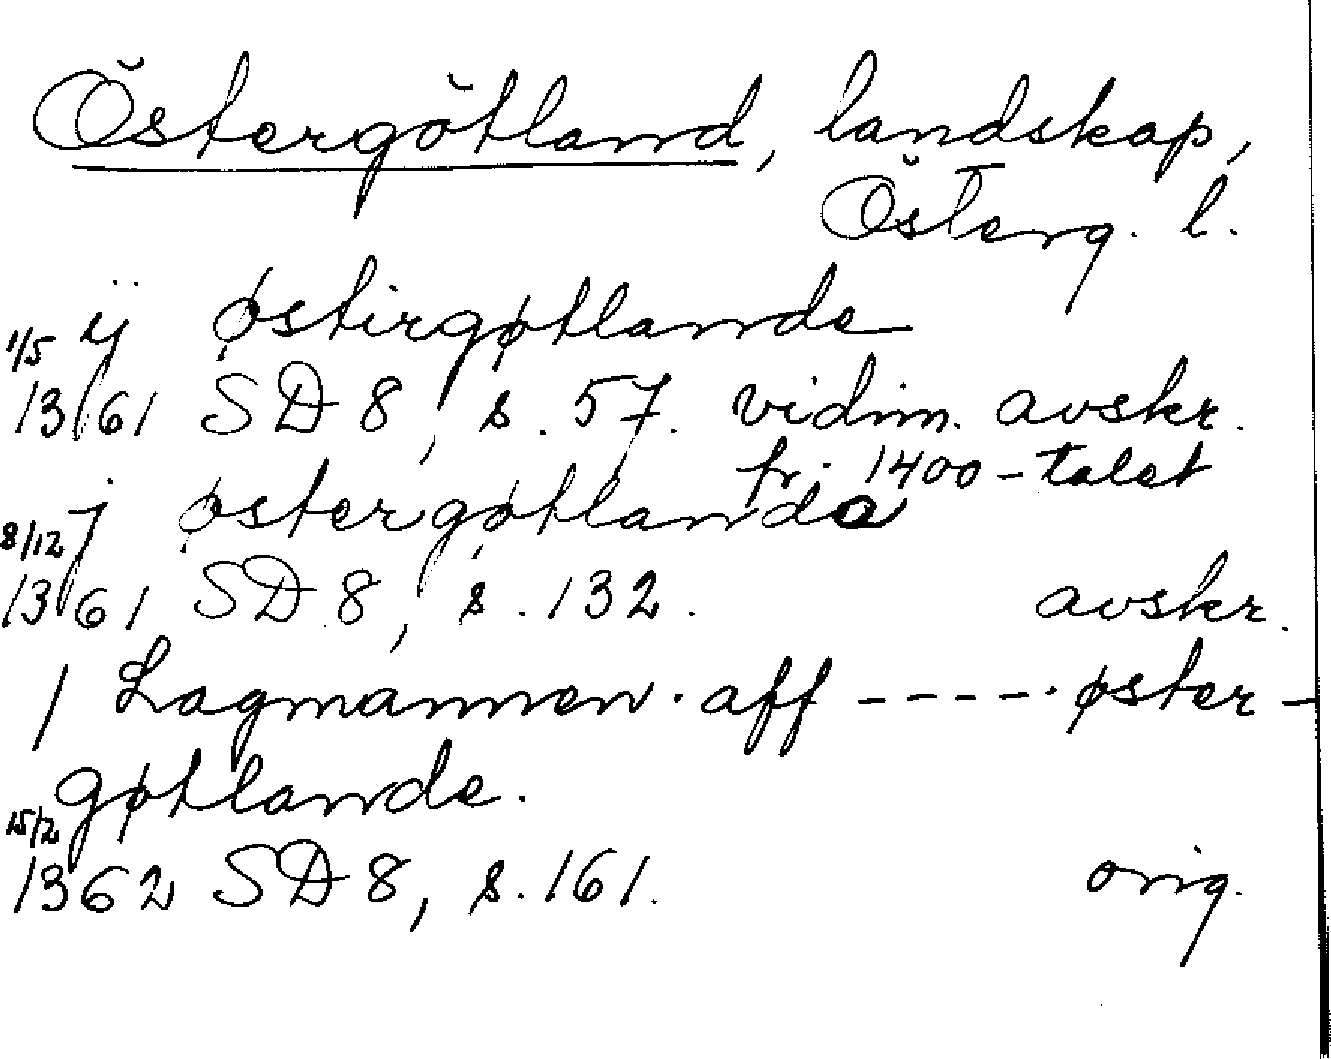 Östergötland, landskap,
Österg. l.
ij østirgøtlande
1/5 1361 SD 8, s. 57. vidim. avskr.
fr. 1400-talet
j østergøtlanda
8/12 1361 SD 8, s. 132. avskr.
/ Lagmannen. aff ----. øster-
gøtlande.
15/2 1362 SD 8, s. 161. orig.